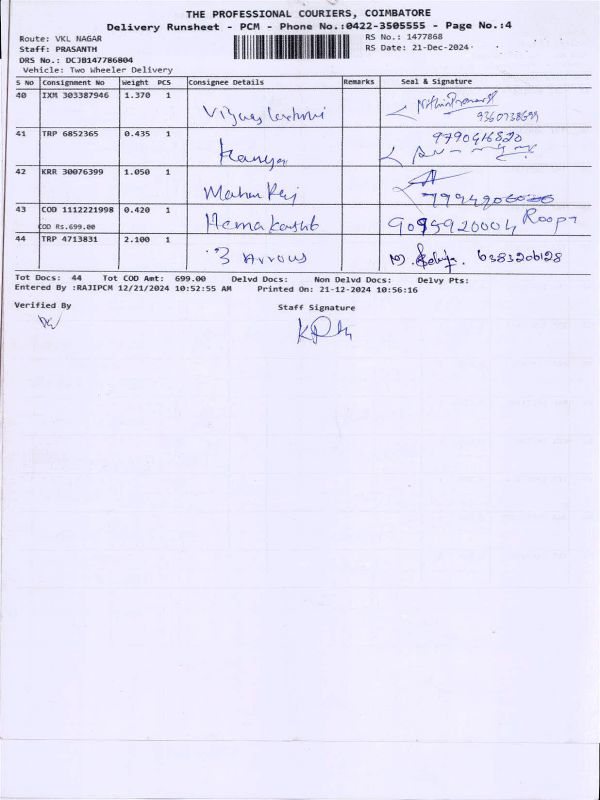 THE PROFESSIONAL COURIERS, COIMBATORE
Delivery Runsheet - PCM - Phone No.:0422-3505555 - Page No.:4
Route: VKL NAGAR RS No.: 1477868
Staff: PRASANTH RS Date: 21-Dec-2024
DRS No.: DCJB147786804
Vehicle: Two Wheeler Delivery
S No Consignment No Weight PCS Consignee Details Remarks Seal & Signature
40 IXM 303387946 1.370 1 9360738699
41 TRP 6852365 0.435 1 9790416820
42 KRR 30076399 1.050 1 Mahan Raj
43 COD 1112221998 0.420 1 Roopa
COD RS.699.00
44 TRP 4713831 2.100 1 3 Arrows 6383206128
Tot Docs: 44 Tot COD Amt: 699.00 Delvd Docs: Non Delvd Docs: Delvy Pts:
Entered By :RAJIPCM 12/21/2024 10:52:55 AM Printed On: 21-12-2024 10:56:16
Verified By Staff Signature